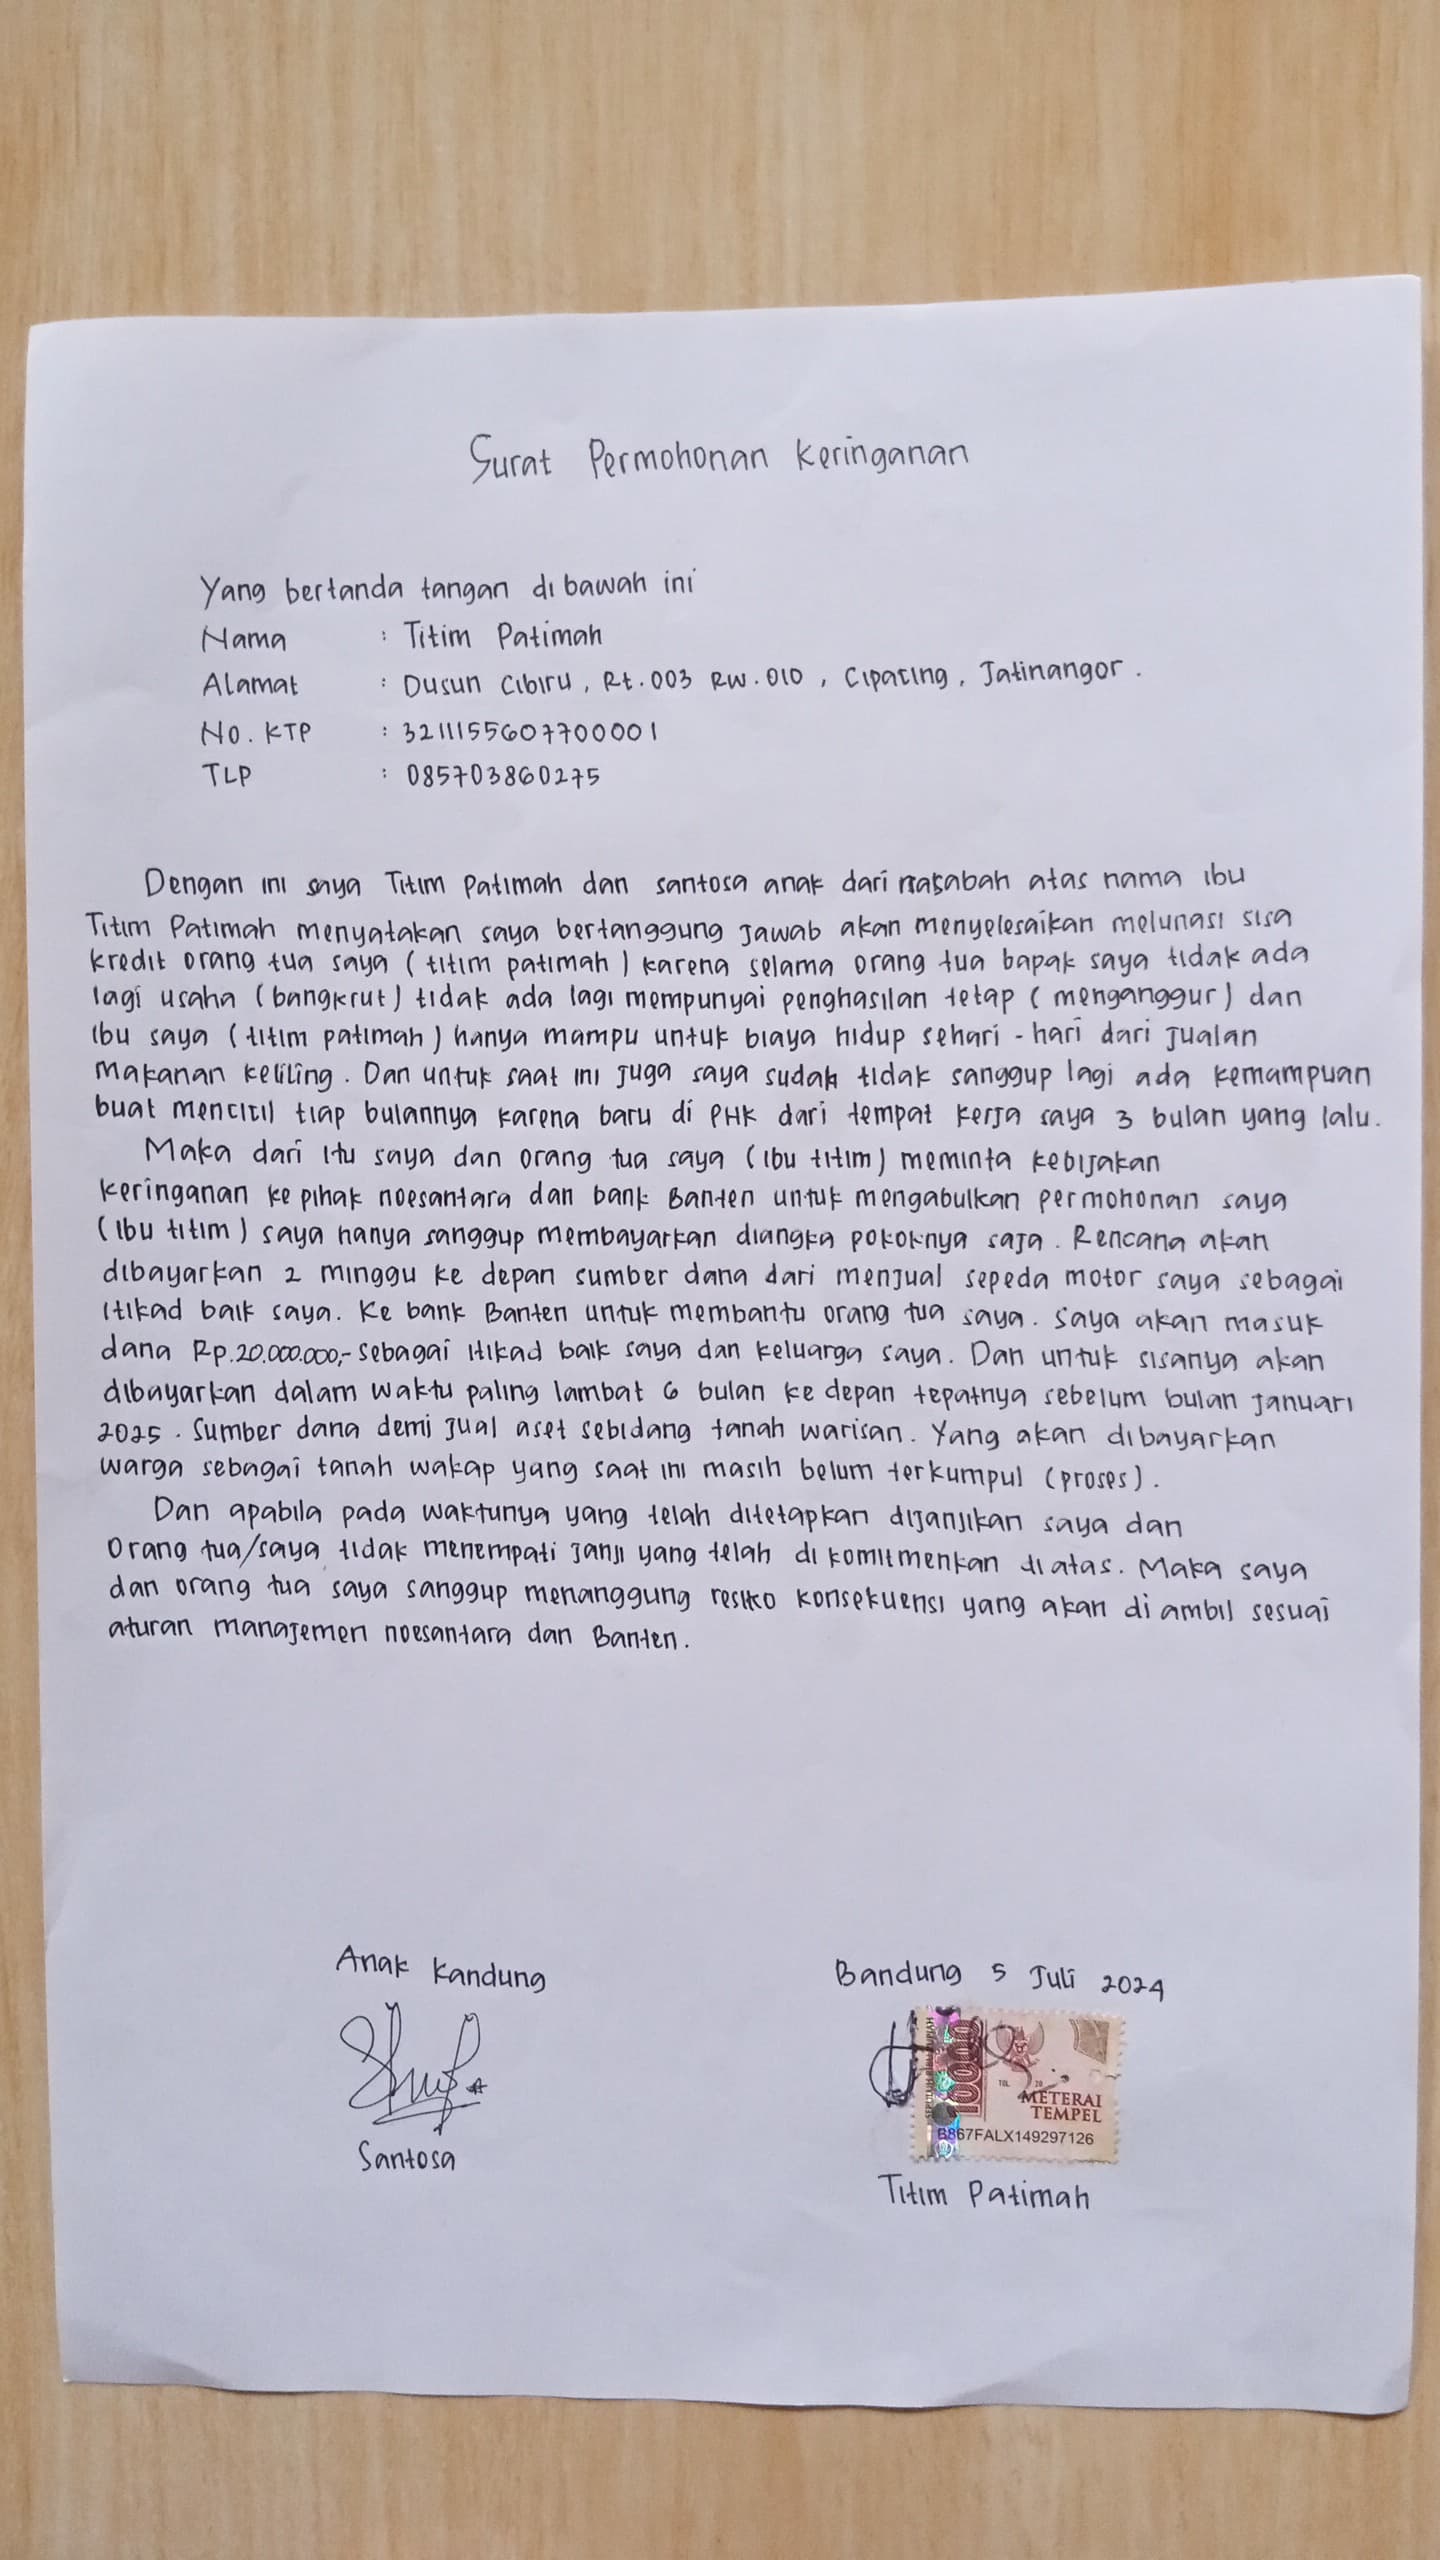 Surat Permohonan Keringanan
Yang bertanda tangan di bawah ini
Nama : Titim Patimah
Alamat : Dusun Cibiru, Rt. 003 RW. 010, Cipacing, Jatinangor.
No. KTP : 3211155607700001
TLP : 085703860275
Dengan ini saya Titim Patimah dan santosa anak dari nasabah atas nama ibu
Titim Patimah menyatakan saya bertanggung jawab akan menyelesaikan melunasi sisa
kredit orang tua saya (titim patimah) karena selama orang tua bapak saya tidak ada
lagi usaha (bangkrut) tidak ada lagi mempunyai penghasilan tetap (menganggur) dan
ibu saya (titim patimah) hanya mampu untuk biaya hidup sehari-hari dari jualan
makanan keliling. Dan untuk saat ini juga saya sudah tidak sanggup lagi ada kemampuan
buat mencicil tiap bulannya karena baru di PHK dari tempat kerja saya 3 bulan yang lalu.
Maka dari itu saya dan orang tua saya (ibu titim) meminta kebijakan
keringanan ke pihak noesantara dan bank Banten untuk mengabulkan permohonan saya
(ibu titim) saya hanya sanggup membayarkan diangka pokoknya saja. Rencana akan
dibayarkan 2 minggu ke depan sumber dana dari menjual sepeda motor saya sebagai
itikad baik saya. Ke bank Banten untuk membantu orang tua saya. saya akan masuk
dana Rp.20.000.000,- sebagai itikad baik saya dan keluarga saya. Dan untuk sisanya akan
dibayarkan dalam waktu paling lambat 6 bulan ke depan tepatnya sebelum bulan januari
2025. Sumber dana demi jual aset sebidang tanah warisan. Yang akan dibayarkan
warga sebagai tanah wakap yang saat ini masih belum terkumpul (proses).
Dan apabila pada waktunya yang telah ditetapkan dijanjikan saya dan
orang tua/saya tidak menempati janji yang telah di komitmenkan di atas. Maka saya
dan orang tua saya sanggup menanggung resiko konsekuensi yang akan di ambil sesuai
aturan managemen noesantara dan Banten.
Anak Kandung
Bandung 5 Juli 2024
10000
METERAI
TEMPEL
B867FALX149297126
Santosa
Titim Patimah